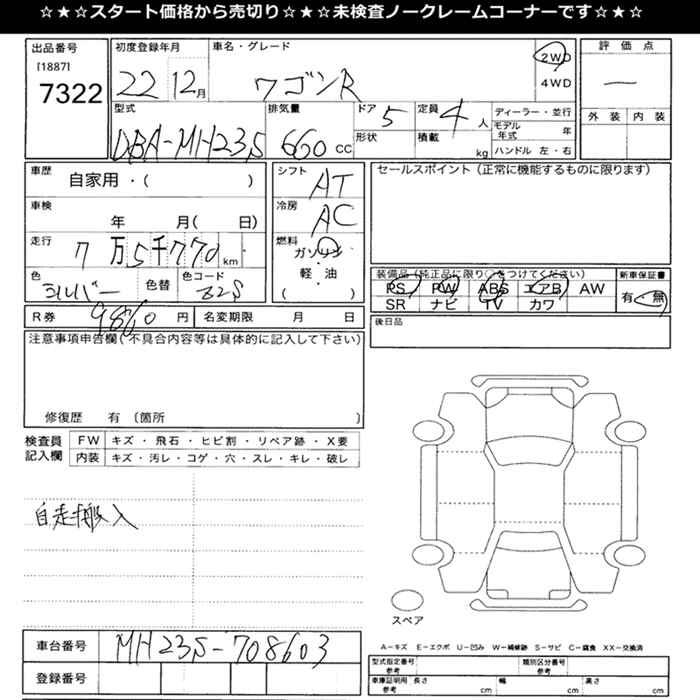 ☆★☆★スタート価格から売切り☆★☆★未検査ノークレームコーナーです☆★☆★☆
出品番号
[1887]
7322
初度登録年月
22 12月
車名・グレード
ワゴンR
2WD
4WD
評価点
—
外装 内装
型式
DBA-MH23S
排気量
660 CC
ドア 5
形状
定員 4人
積載 kg
ディーラー・並行
モデル年式 年
ハンドル 左・右
車歴
自家用・( )
シフト AT
セールスポイント(正常に機能するものに限ります)
車検
年 月( 日)
冷房 AC
走行
7万5千770km
燃料
ガソリン
・
軽油
( )
色 シルバー
色替
色コード Z2S
装備品(純正品に限り○をつけてください)
PS PW ABS エアB AW
SR ナビ TV カワ
新車保証書
有・無
R券 9860円
名変期限 月 日
後日品
注意事項申告欄(不具合内容等は具体的に記入して下さい)
修復歴 有 〔箇所 〕
検査員記入欄
FW キズ・飛石・ヒビ割・リペア跡・X要
内装 キズ・汚レ・コゲ・穴・スレ・キレ・破レ
自走搬入
スペア
A-キズ E-エクボ U-凹み W-補修跡 S-サビ C-腐食 XX-交換済
車台番号 MH23S-708603
登録番号
型式指定番号 参考
類別区分番号 参考
車庫証明用 参考 長さ cm 幅 cm 高さ cm